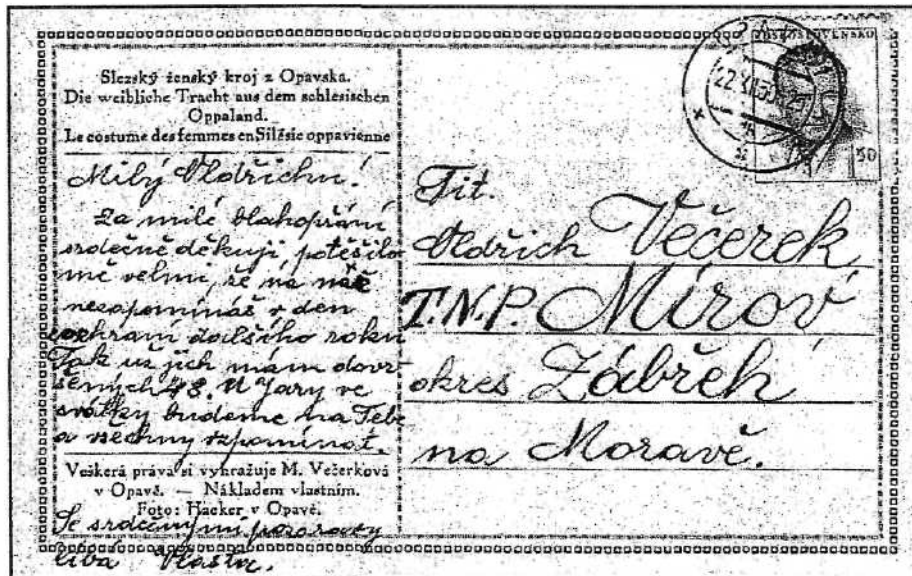 Slezský ženský kroj z Opavska.
Die weibliche Tracht aus dem schlesischen
Oppaland.
Le costume des femmes en Silésie oppavienne
Milý Oldřichu!
Za milé blahopřání
srdečně děkuji, potěšilo
mě velmi, že na mě
nezapomínáš v den
dalšího roku
Tak už jich mám dovr-
šených 48. U Jary ve
svátky budeme na Tebe
a všechny vzpomínat.
Veškerá práva si vyhražuje M. Večerková
v Opavě. — Nákladem vlastním.
Foto: Hacker v Opavě.
Se srdečnými pozdravy
líbá Vlasta.
ČESKOSLOVENSKO
22.XII.50
50
Tit.
Oldřich Večerek
T.N.P. Mírov
okres Zábřeh
na Moravě.